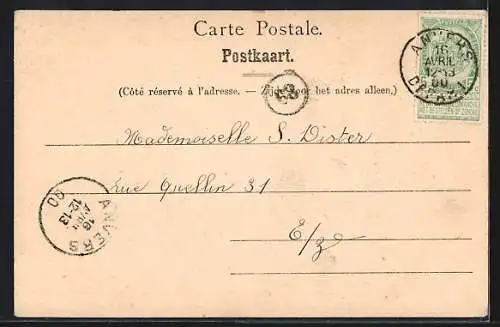 Carte Postale.
Postkaart.
(Côté réservé à l'adresse. — Zijde voor het adres alleen.)
ANVERS
16
AVRIL
12-13
00
DEPART
Mademoiselle S. Dister
rue Quellin 31
E/z
ANVERS
16
AVRIL
12-13
00